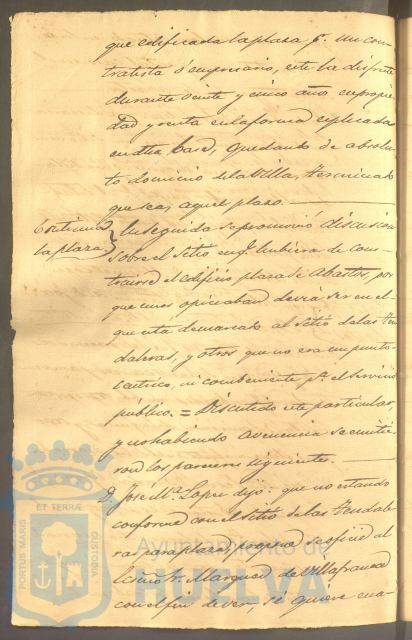 que edificada la plaza pr. un con-
tratista ó empresario, este la disfrute
durante veinte y cinco años en propie-
dad y renta en la forma esplicada
en dha base, quedando de absolu-
to dominio de la Villa, terminado
que sea, aquel plazo.
Continua
la plaza
En seguida se promovió discusion
sobre el sitio en qe. hubiera de cons-
truirse el edificio plaza de Abastos, por
que unos opinaban deviá ser en el
que está demarcado al sitio de las Ten-
daleras, y otros que no era un punto
centrico, ni combeniente pa. el servicio
público. = Discutido este particular,
y no habiendo avenencia se emitie-
ron los pareceres siguiente.
D. José Ma. Lopez dijo: que no estando
conforme con el sitio de las Tendale-
ras para plaza, se oficie al
Escmo. Sr. Marques de Villafranca
con el fin de ver, si quiere ena-
PORTUS MARIS
ET TERRÆ
CUSTODIA
Ayuntamiento de
HUELVA